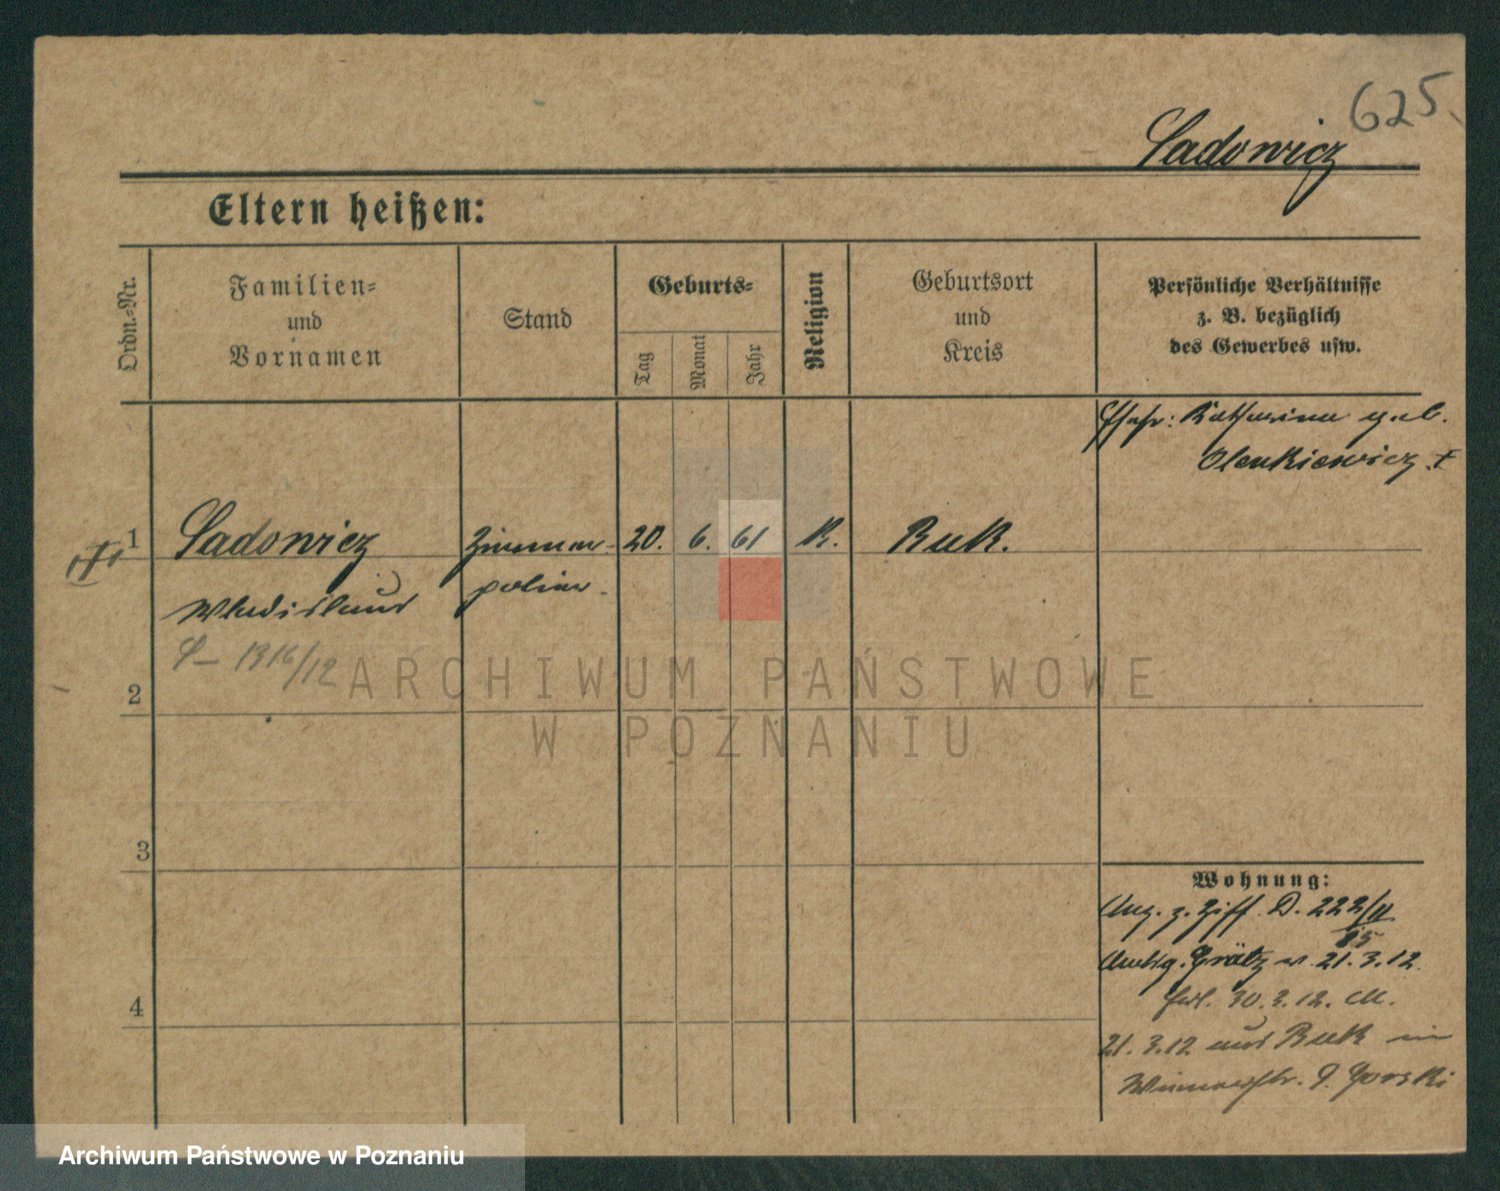 625
Sadowicz
Eltern heißen:
Ordn.-Nr.
Familien-
und
Vornamen
Stand
Geburts-
Tag
Monat
Jahr
Religion
Geburtsort
und
Kreis
Persönliche Verhältnisse
z. B. bezüglich
des Gewerbes usw.
Ehefr: Katharina geb.
Olenkiewicz. †
1
Sadowicz
Zimmer-
20.
6.
61
K.
Buk.
Wladislaus
polier.
1316/12
2
3
4
Wohnung:
Anz. z. Ziff. D. 222/II
85
Grätz v. 21.3.12.
30.3.12.
21.3.12 aus Buk in
Gorski
ARCHIWUM PAŃSTWOWE
W POZNANIU
Archiwum Państwowe w Poznaniu